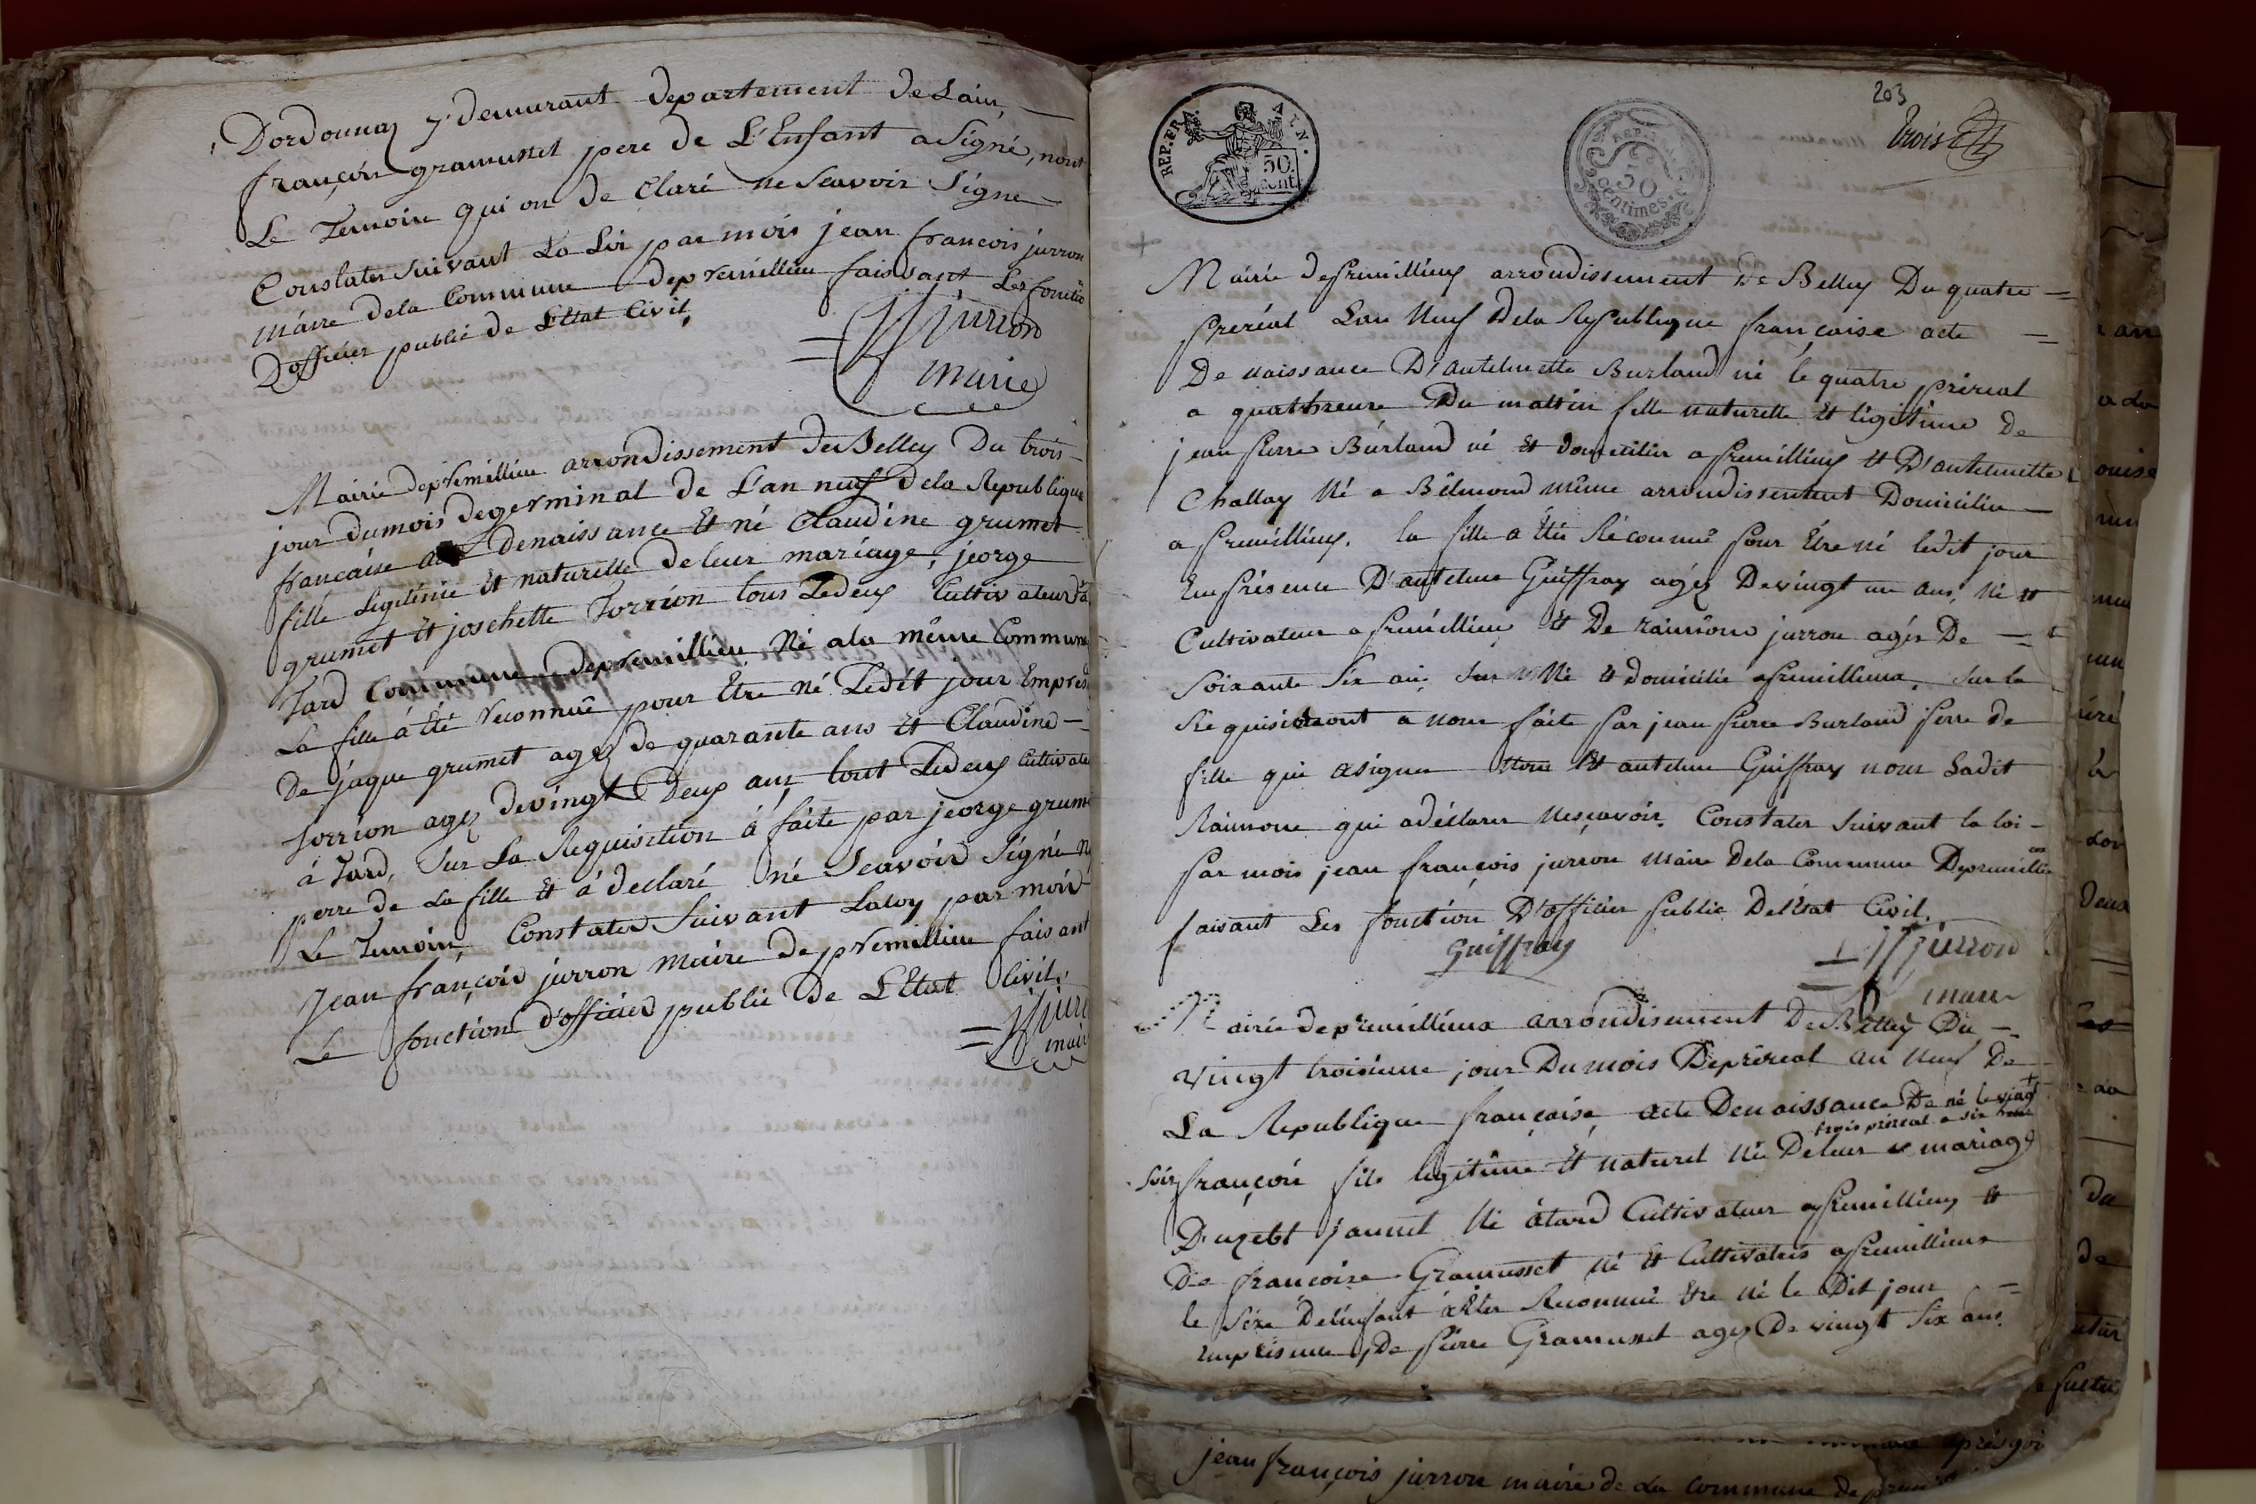 Dordonnaz y demurant departement de Lain
françois gramusset pere de L'Enfant a Signé, nont
Le Temoin qui on de Claré ne Scavoir Signe
Constater Suivant La Loi par mois jean francois jurron
maire dela Commune depremillieu faissant Les fonctio
D'officier public de L'Etat Civil,
JFjurron
maire
Mairie depremillieu arrondissement de Belley Du trois
jour dumois degerminal de L'an neuf dela Republique
francaise acte denaissance Et né Claudine grumet
fille Legitimie Et naturelle de leur mariage, jeorge
grumet Et joschette Jorrion tous Ledeux Cultivateurs à
Tard Commune depremillieu Né ala même Commune
La fille à Eté reconnuë pour Etre né Ledit jour Empres
De jaque grumet agez de quarante ans et Claudine
jorrion agez devingt Deux ans tout Ledeux Cultivate
à Tard, Sur La Requisition à faite par jeorge grume
perre de La fille Et à declaré né Scavoir Signé N
Le Temoin Constater Suivant Laloy par moir
Jean françois jurron maire depremillieu faisant
Le fonction d'officier public de L'Etat Civil.
JFjurr
mair
REP. FRA.
50.
cent.
REP.
50
centimes.
203
trois
Mairie depremillieux arrondissement de Belley Du quatre
preréal Lan Neuf Dela Republique française acte
De naissance D'antelmette Burland né le quatre préreal
a quattheure Du mattin fille naturelle Et légitime De
jean pierre Burland né Et domicilier a premillieux Et D'antelmette
Challay Né a Bélmond même arrondissement Domicilier
a premillieux. la fille a Etée Réconnuë pour Etre né ledit jour
En présence D'antelme Guiffray agéz De vingt un ans, Né et
Cultivateur a premillieu Et De raimone jurron agés De
Soixante Six an, Né Et domicilie apremillieux, Sur la
Réquisition a nous faite par jean pierre Burland perre de
fille qui asigner Nous Et antelme Guiffray nour Ladit
Raimone qui adéclarer Nesçavoir. Constater Suivant la loi
par mois jean françois jurron Maire Dela Commune Depremillieu
faisant Les fonction D'officier public Delétat Civil.
Guiffray
JFjurron
maire
Mairie depremillieux arrondisement De Belley Du
vingt troisieme jour Du mois Depréreal an Neuf De
La Republique française, acte Denaissance De né le vingt
trois préreal a six heure
Soir françois fils legitime Et naturel Né Deleur mariage
D'uzebt jannet Né àtard Cultivateur apremillieux Et
De françoise Gramusset Né Et Cultivatris apremillieux
le Séxe Delenfant àEter Reconnuë Etre Né le Dit jour
Enpresence De pierre Gramusset agez De vingt Six ans
jean françois jurron maire de la commune de premi